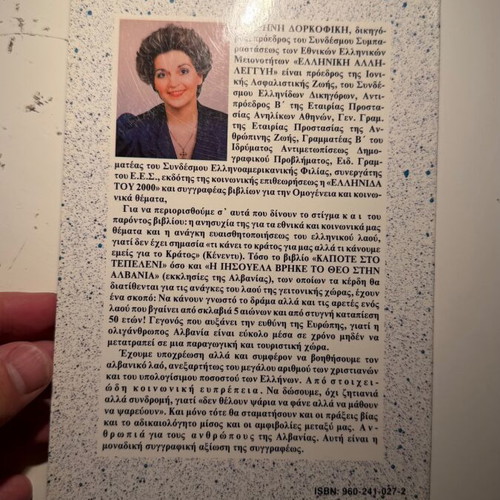 ΡΗΝΗ ΔΟΡΚΟΦΙΚΗ, δικηγό-
ρος, πρόεδρος του Συνδέσμου Συμπα-
ραστάσεως των Εθνικών Ελληνικών
Μειονοτήτων «ΕΛΛΗΝΙΚΗ ΑΛΛΗ-
ΛΕΓΓΥΗ» είναι πρόεδρος της Ιονι-
κής Ασφαλιστικής Ζωής, του Συνδέ-
σμου Ελληνίδων Δικηγόρων, Αντι-
πρόεδρος Β΄ της Εταιρίας Προστα-
σίας Ανηλίκων Αθηνών, Γεν. Γραμ.
της Εταιρίας Προστασίας της Αν-
θρώπινης Ζωής, Γραμματέας Β΄ του
Ιδρύματος Αντιμετωπίσεως Δημο-
γραφικού Προβλήματος, Ειδ. Γραμ-
ματέας του Συνδέσμου Ελληνοαμερικανικής Φιλίας, συνεργάτης
του Ε.Ε.Σ., εκδότης της κοινωνικής επιθεωρήσεως η «ΕΛΛΗΝΙΔΑ
ΤΟΥ 2000» και συγγραφέας βιβλίων για την Ομογένεια και κοινω-
νικά θέματα,
Για να περιορισθούμε σ΄ αυτά που δίνουν το στίγμα και του
παρόντος βιβλίου: η ανησυχία της για τα εθνικά και κοινωνικά μας
θέματα και η ανάγκη ευαισθητοποιήσεως του ελληνικού λαού,
γιατί δεν έχει σημασία «τι κάνει το κράτος για μας αλλά τι κάνουμε
εμείς για το Κράτος» (Κένεντυ). Τόσο το βιβλίο «ΚΑΠΟΤΕ ΣΤΟ
ΤΕΠΕΛΕΝΙ» όσο και «Η ΠΗΣΟΥΕΛΑ ΒΡΗΚΕ ΤΟ ΘΕΟ ΣΤΗΝ
ΑΛΒΑΝΙΑ» (εκκλησίες της Αλβανίας), των οποίων τα κέρδη θα
διατίθενται για τις ανάγκες του λαού της γειτονικής χώρας, έχουν
ένα σκοπό: Να κάνουν γνωστό το δράμα αλλά και τις αρετές ενός
λαού που βγαίνει από σκλαβιά 5 αιώνων και από στυγνή καταπίεση
50 ετών! Γεγονός που αυξάνει την ευθύνη της Ευρώπης, γιατί η
ολιγάνθρωπος Αλβανία είναι εύκολο μέσα σε χρόνο μηδέν να
μετατραπεί σε μια παραγωγική και τουριστική χώρα.
Έχουμε υποχρέωση αλλά και συμφέρον να βοηθήσουμε τον
αλβανικό λαό, ανεξαρτήτως του μεγάλου αριθμού των χριστιανών
και του υπολογίσιμου ποσοστού των Ελλήνων. Από στοιχει-
ώδη κοινωνική ευπρέπεια. Να δώσουμε, όχι ζητιανιά
αλλά συνδρομή, γιατί «δεν θέλουν ψάρια να φάνε αλλά να μάθουν
να ψαρεύουν». Και μόνο τότε θα σταματήσουν και οι πράξεις βίας
και το αδικαιολόγητο μίσος και οι αμφιβολίες μεταξύ μας. Αν-
θρωπιά για τους ανθρώπους της Αλβανίας. Αυτή είναι η
μοναδική συγγραφική αξίωση της συγγραφέως.
ISBN: 960-241-027-2